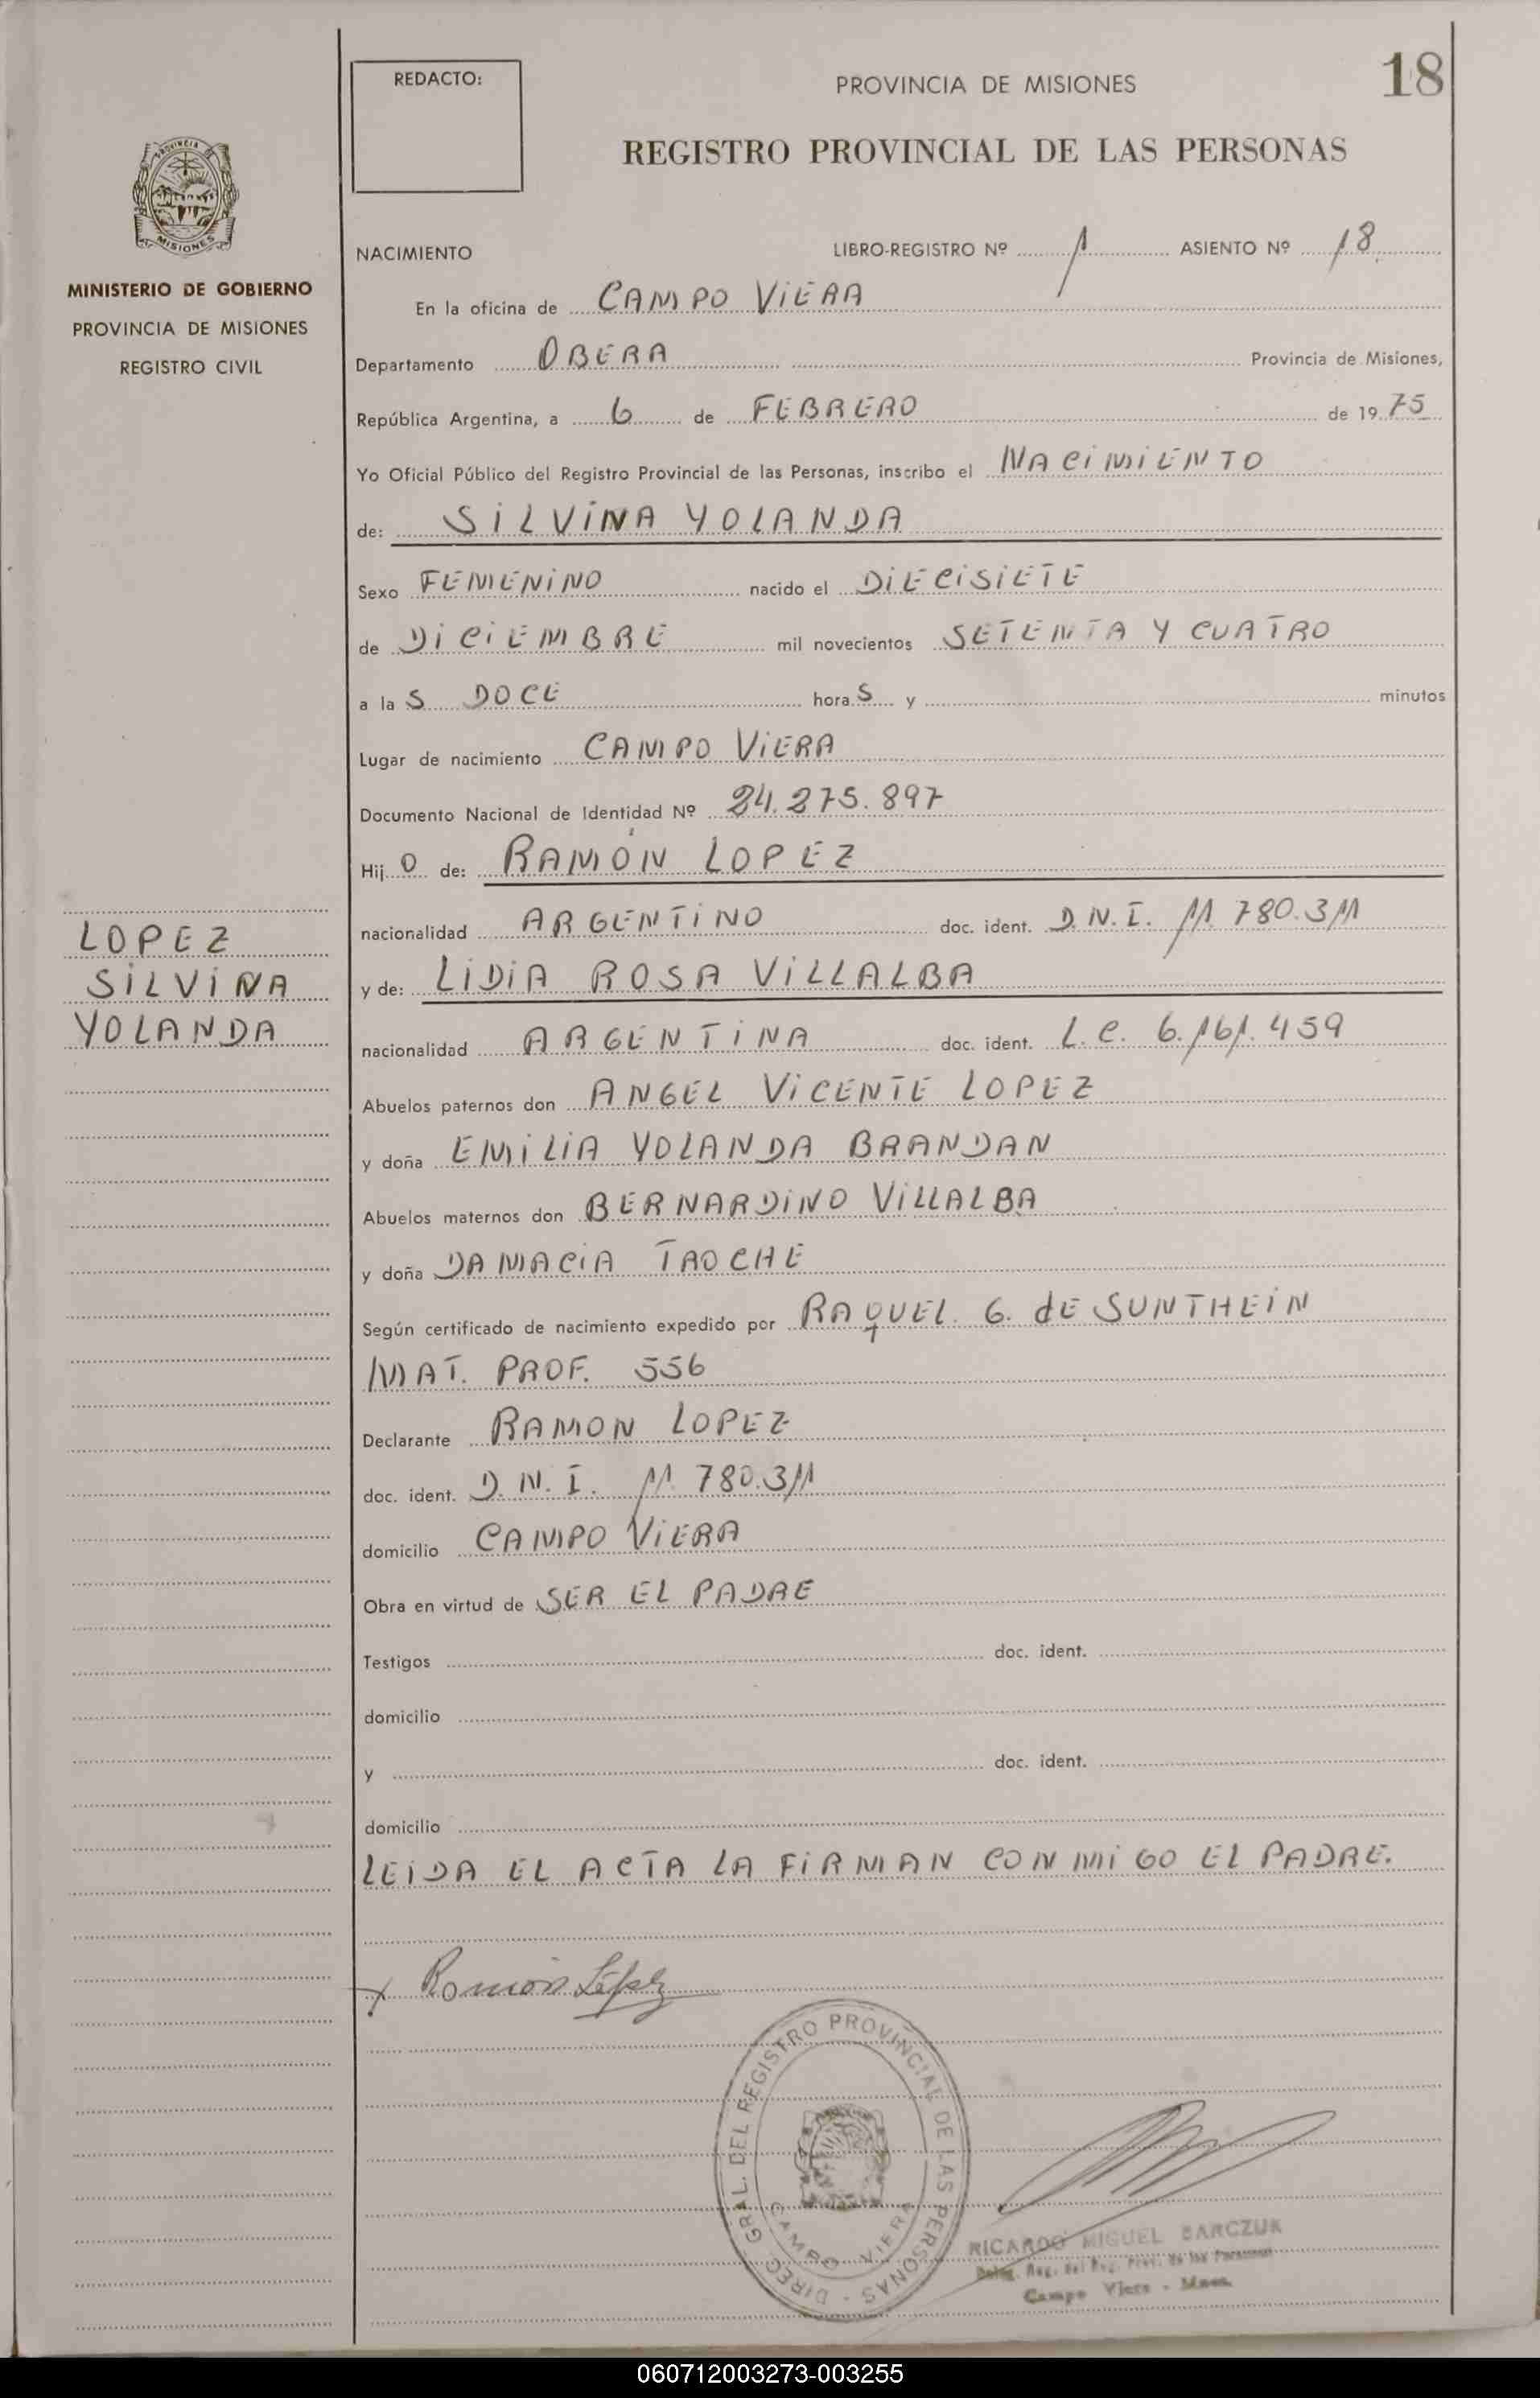 REDACTO:
PROVINCIA DE MISIONES
18
REGISTRO PROVINCIAL DE LAS PERSONAS
PROVINCIA
MISIONES
MINISTERIO DE GOBIERNO
PROVINCIA DE MISIONES
REGISTRO CIVIL
NACIMIENTO LIBRO-REGISTRO Nº 1 ASIENTO Nº 18
En la oficina de CAMPO VIERA
Departamento OBERA Provincia de Misiones,
República Argentina, a 6 de FEBRERO de 1975
Yo Oficial Público del Registro Provincial de las Personas, inscribo el NACIMIENTO
de: SILVINA YOLANDA
Sexo FEMENINO nacido el DIECISIETE
de DICIEMBRE mil novecientos SETENTA Y CUATRO
a la S DOCE hora S y minutos
Lugar de nacimiento CAMPO VIERA
Documento Nacional de Identidad Nº 24.275.897
Hij O de: RAMÓN LOPEZ
nacionalidad ARGENTINO doc. ident. D.N.I. 11.780.311
y de: LIDIA ROSA VILLALBA
nacionalidad ARGENTINA doc. ident. L.C. 6.161.459
Abuelos paternos don ANGEL VICENTE LOPEZ
y doña EMILIA YOLANDA BRANDAN
Abuelos maternos don BERNARDINO VILLALBA
y doña DAMACIA TROCHE
Según certificado de nacimiento expedido por RAQUEL G. dE SUNTHEIN
MAT. PROF. 556
Declarante RAMON LOPEZ
doc. ident. D.N.I. 11.780.311
domicilio CAMPO VIERA
Obra en virtud de SER EL PADRE
Testigos doc. ident.
domicilio
y doc. ident.
domicilio
LEIDA EL ACTA LA FIRMAN CONMIGO EL PADRE.
LOPEZ
SILVINA
YOLANDA
x Ramón López
DIREC. GRAL. DEL REGISTRO PROVINCIAL DE LAS PERSONAS -
CAMPO VIERA
RICARDO MIGUEL BARCZUK
Deleg. Reg. del Reg. Prov. de las Personas
Campo Viera - Mnes.
060712003273-003255